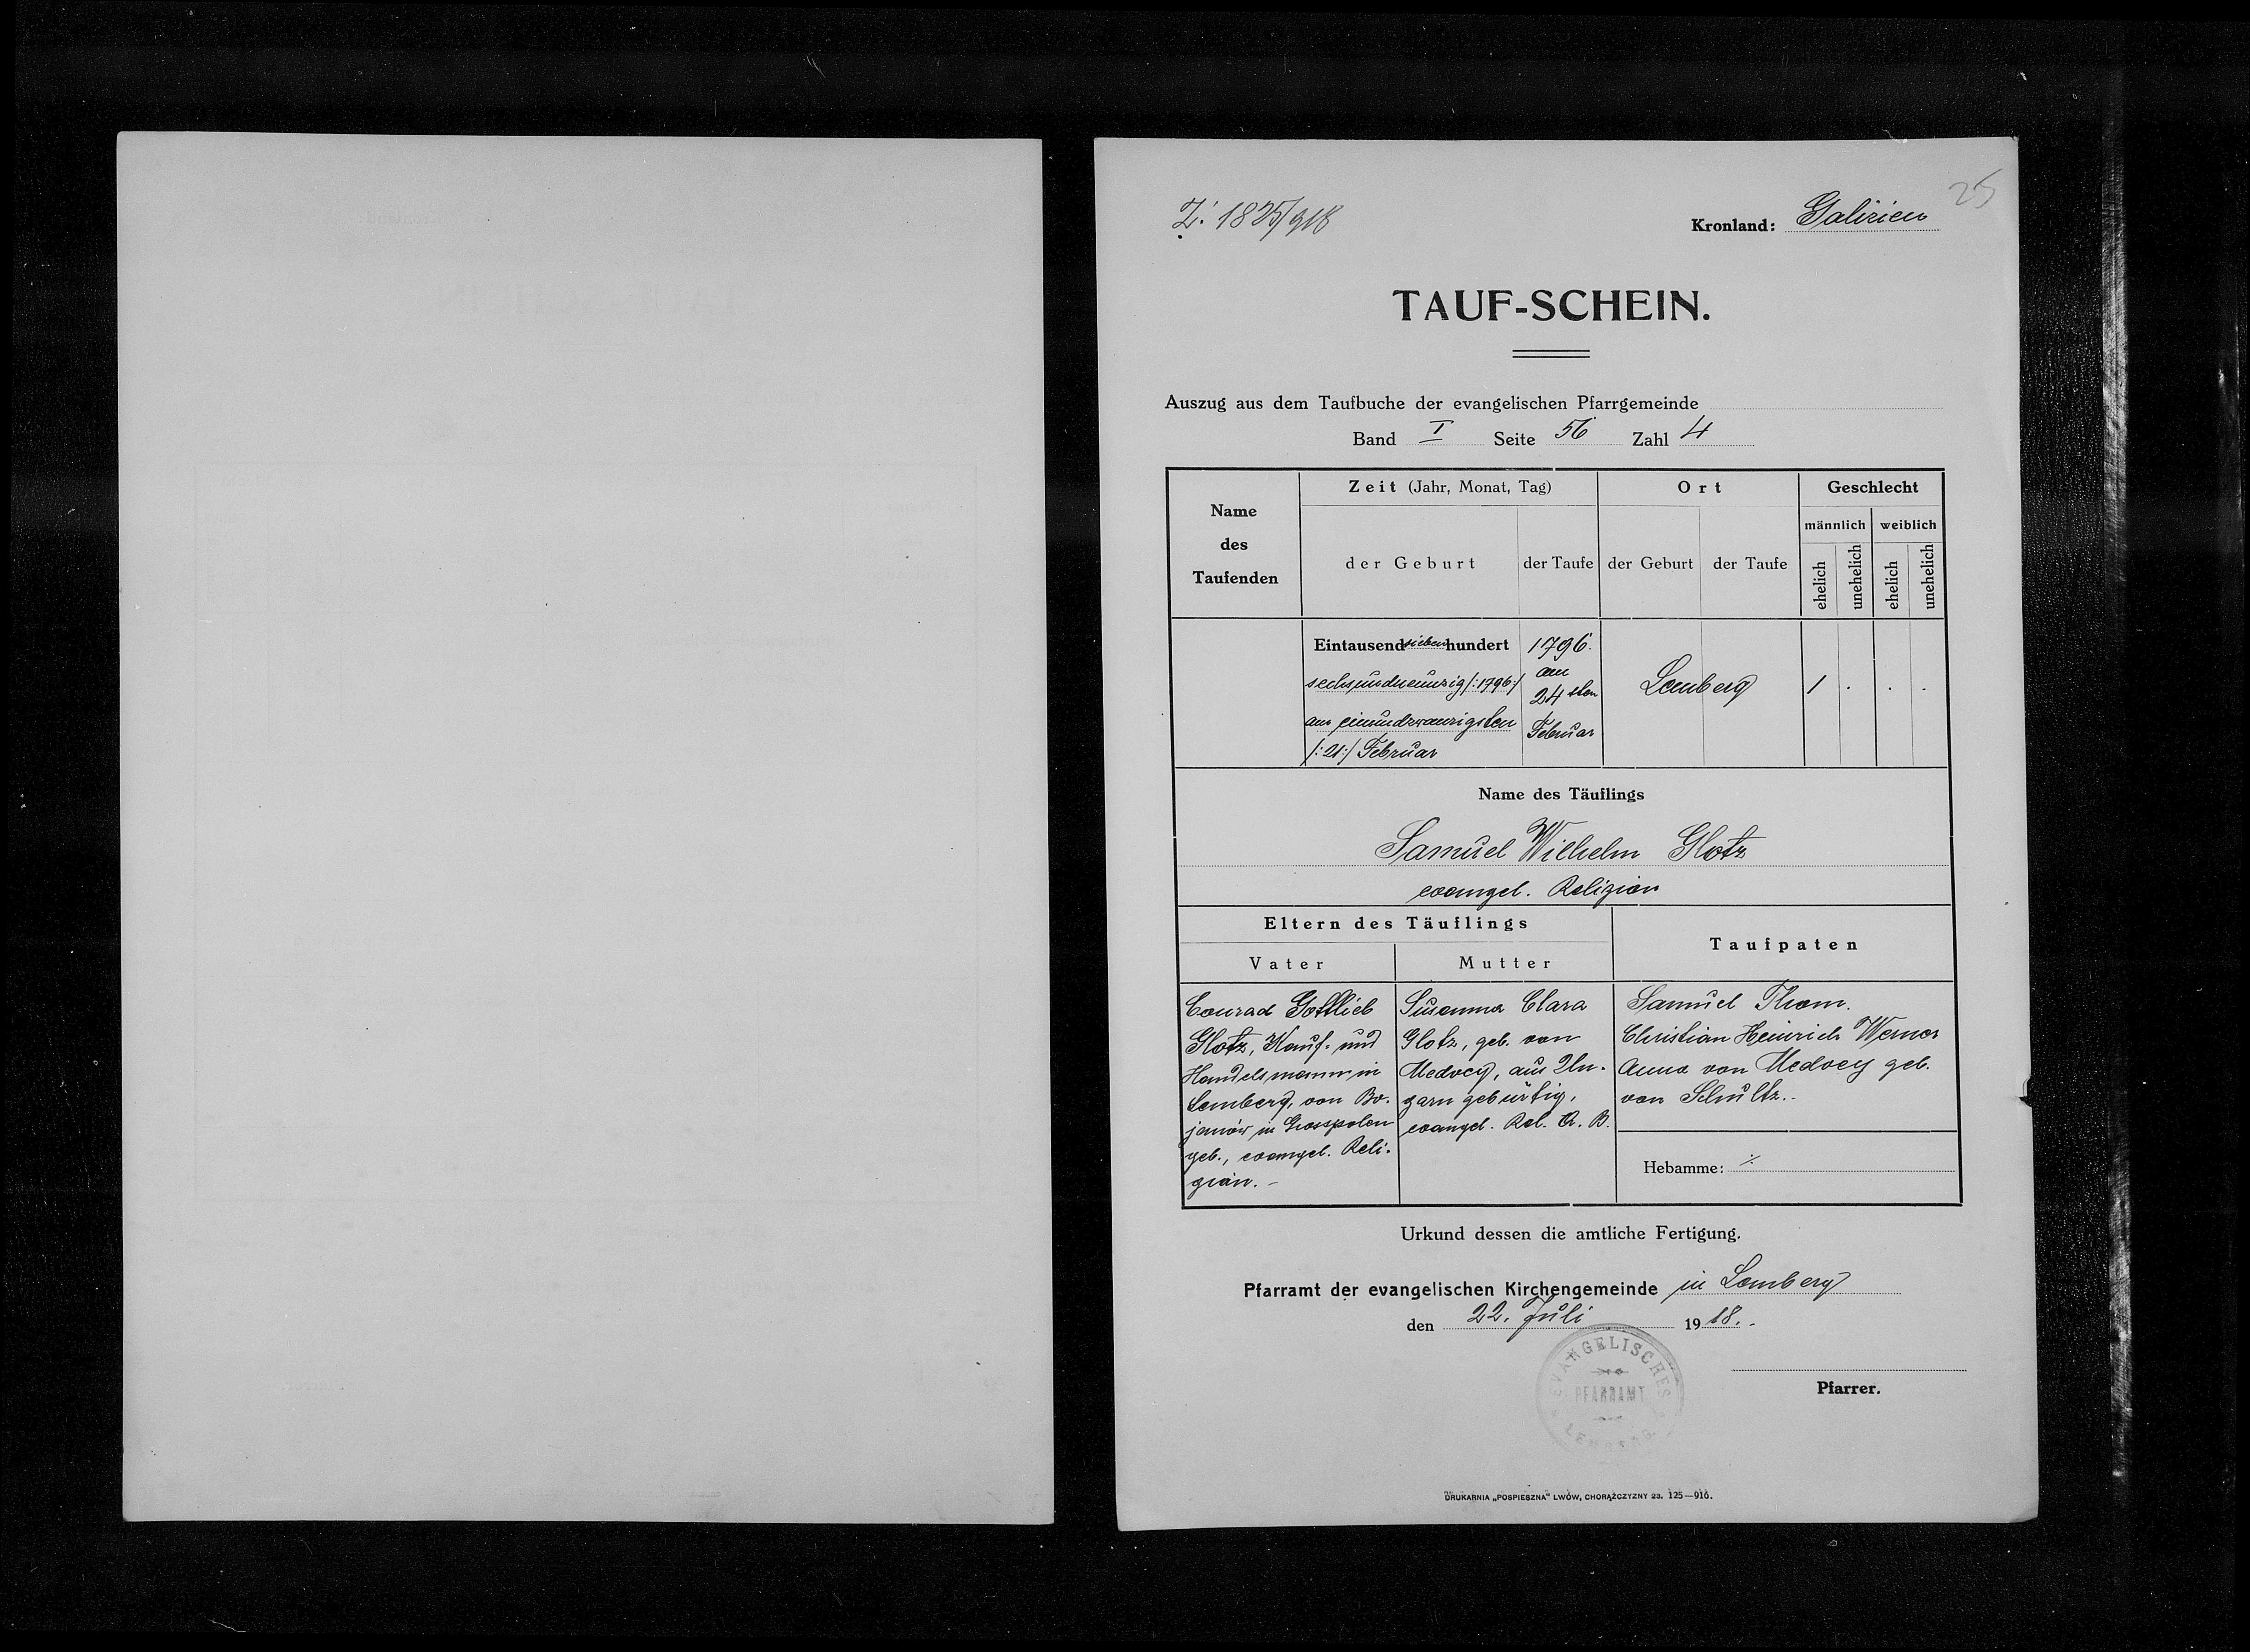 25
Z: 1835/918
Kronland: Galizien
TAUF-SCHEIN.
Auszug aus dem Taufbuche der evangelischen Pfarrgemeinde
Band I Seite 56 Zahl 4
Name des Taufenden
Zeit (Jahr, Monat, Tag)
Ort
Geschlecht
männlich weiblich
der Geburt der Taufe der Geburt der Taufe ehelich unehelich ehelich unehelich
Eintausendsiebenhundert
sechsundneunzig /:1796:/
am einundzwanzigsten
/:21:/ Februar
1796.
am
24sten
Februar
Lemberg
1 . . .
Name des Täuflings
Samuel Wilhelm Glotz
evangel. Religion
Eltern des Täuflings
Taufpaten
Vater Mutter
Conrad Gottlieb
Glotz, Kauf- und
Handelsmann in
Lemberg, von Bo-
janów in Grosspolen
geb., evangel. Reli-
gion. –
Susanna Clara
Glotz, geb. von
Medvey, aus Un-
garn gebürtig,
evangel. Rel. A. B.
Samuel Thom.
Christian Heinrich Werner
Anna von Medvey geb.
von Schultz..
Hebamme: ·/.
Urkund dessen die amtliche Fertigung.
Pfarramt der evangelischen Kirchengemeinde in Lemberg
den 22. Juli 1918. -
EVANGELISCHES
PFARRAMT
LEMBERG
Pfarrer.
DRUKARNIA „POSPIESZNA" LWÓW, CHORĄŻCZYZNY 23. 125—916.